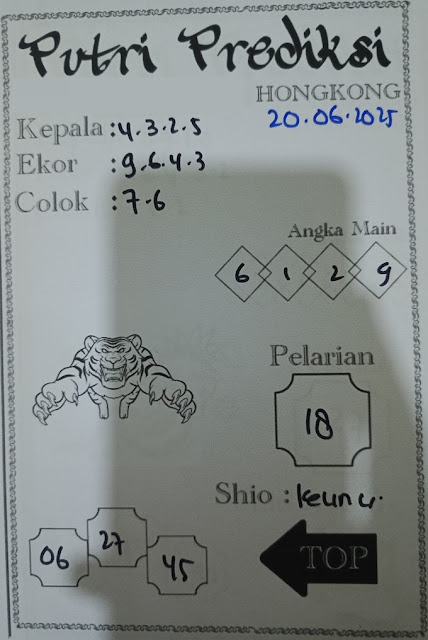 Putri Prediksi
HONGKONG
20.06.2025
Kepala : 4.3.2.5
Ekor : 9.6.4.3
Colok : 7.6
Angka Main
6 1 2 9
Pelarian
18
Shio :
06 27 45
TOP